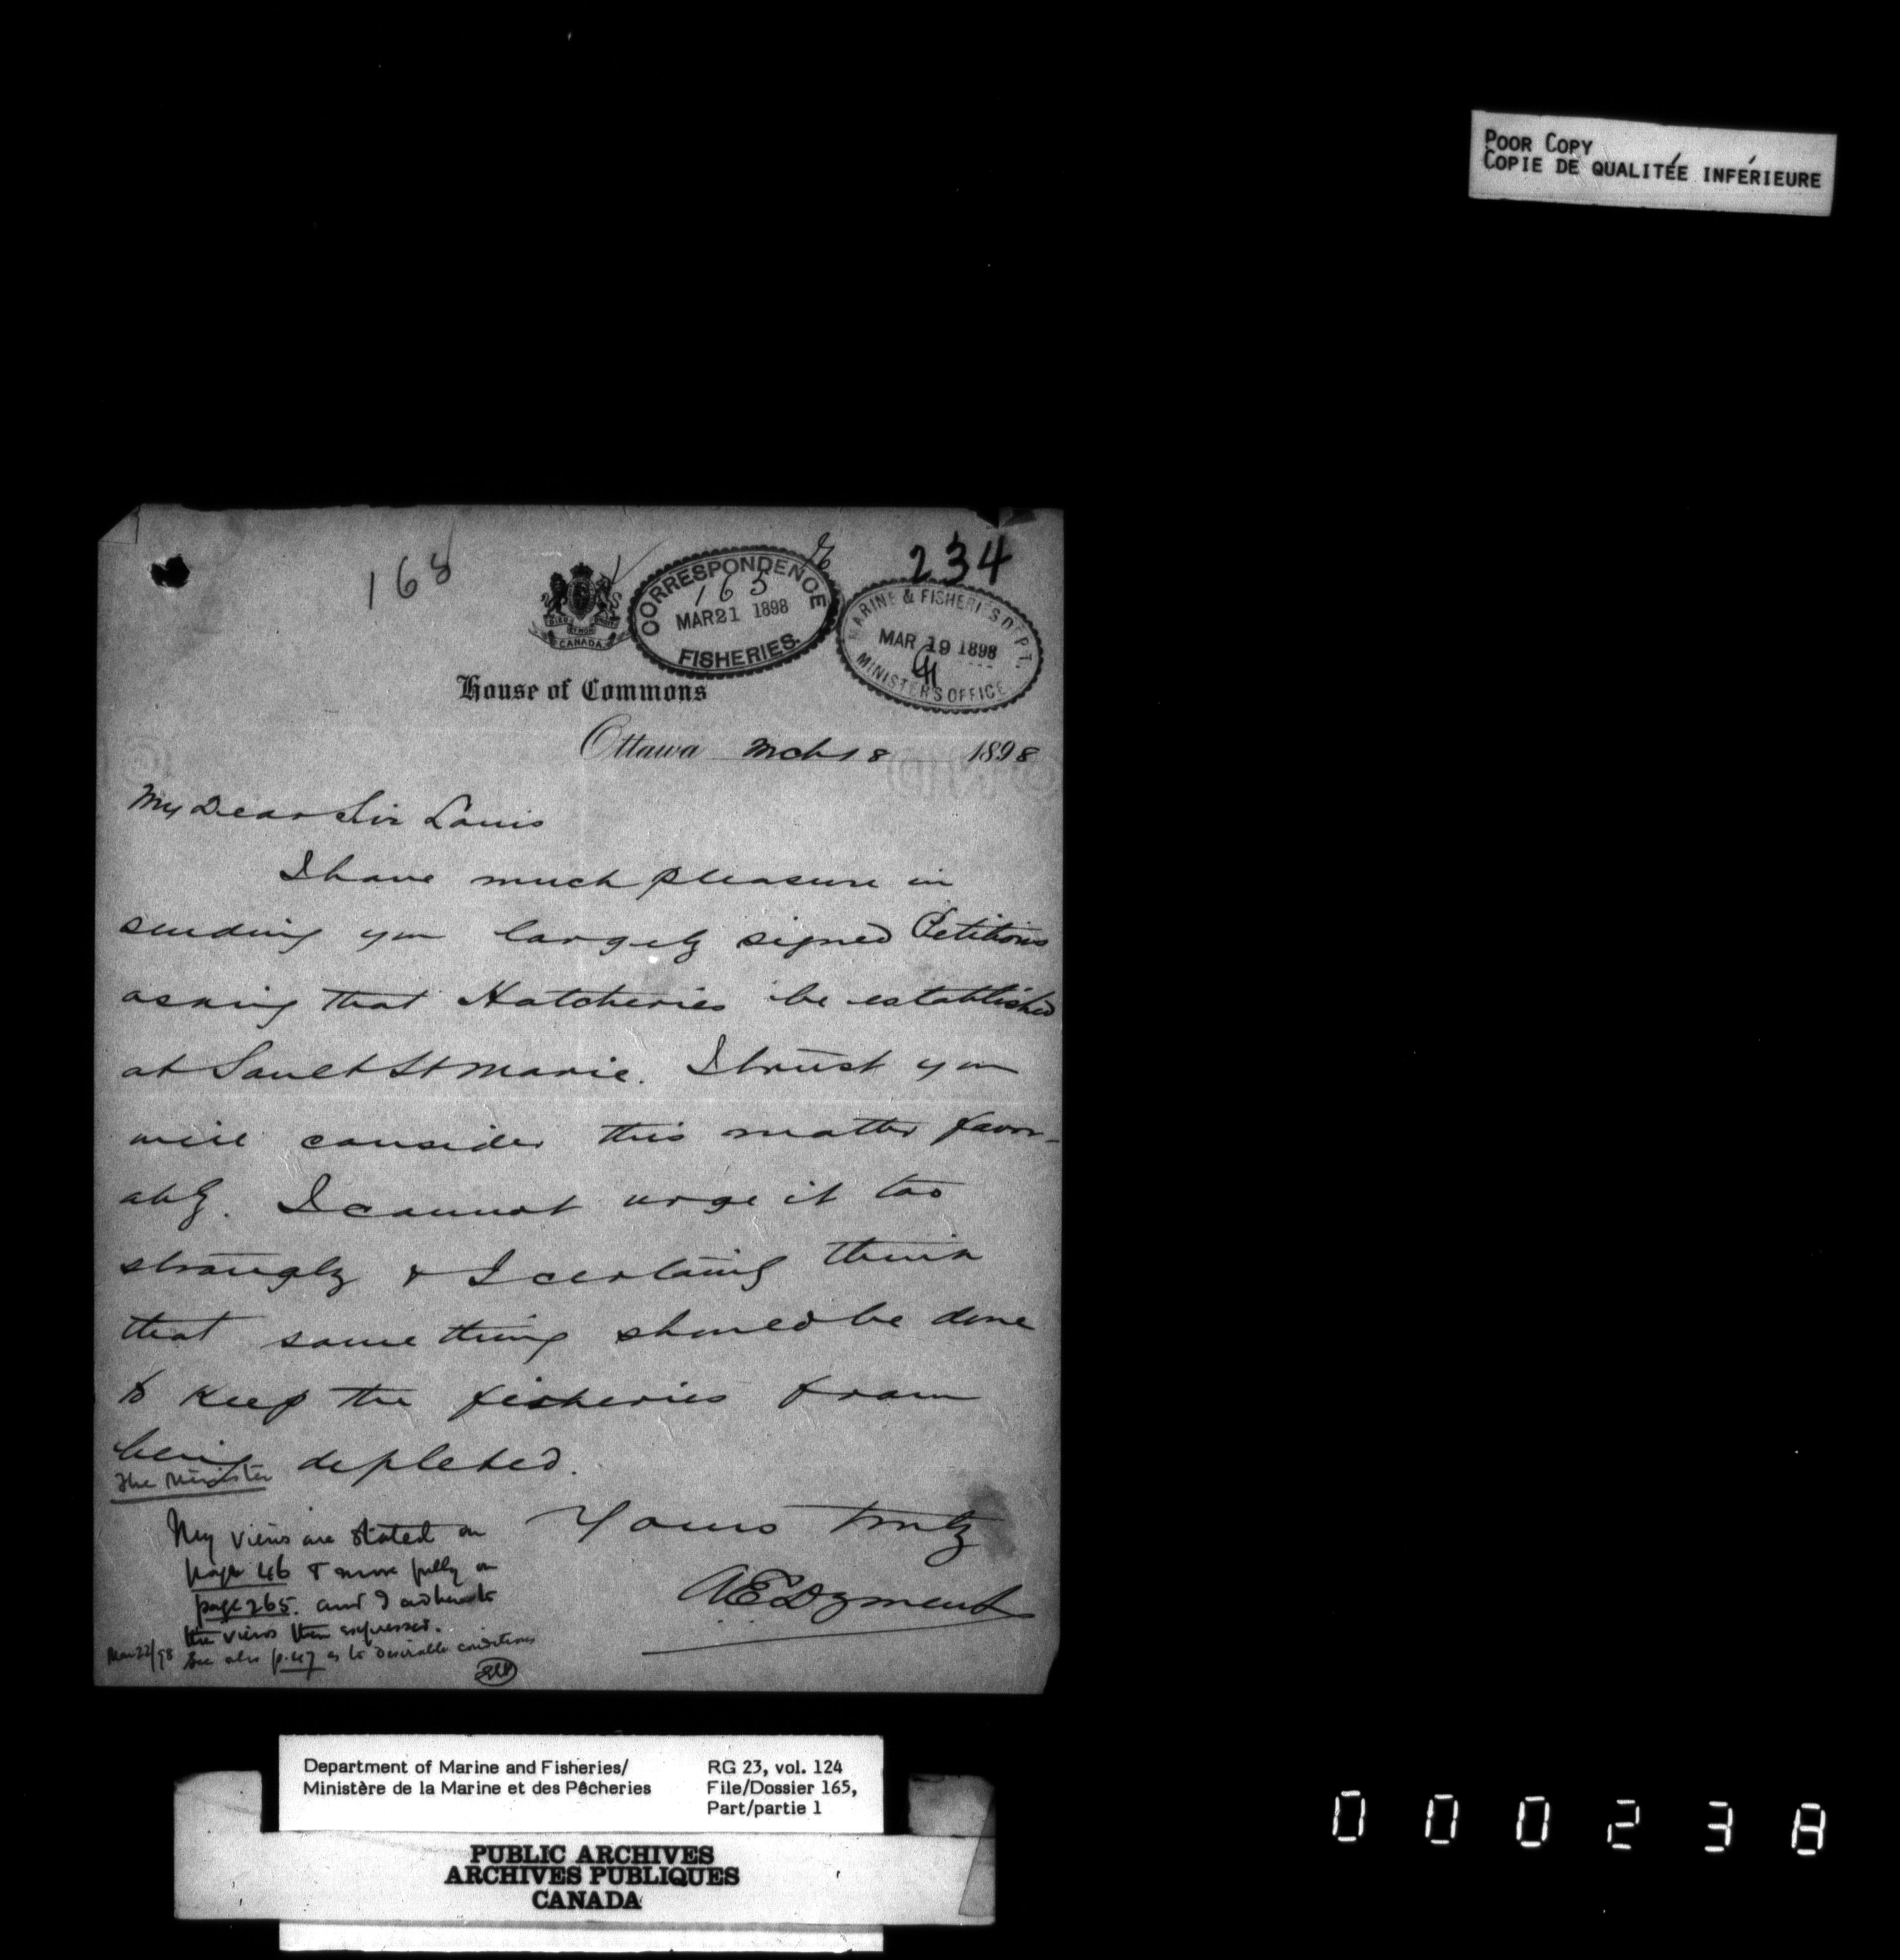 POOR COPY
COPIE DE QUALITÉE INFÉRIEURE
168
234
CORRESPONDENCE
165
MAR 21 1898
FISHERIES.
MARINE & FISHERIES DEPT.
MAR 19 1898
MINISTER'S OFFICE
DIEU ET MON DROIT
CANADA
House of Commons
Ottawa Mch 18 1898
My Dear Sir Louis
I have much pleasure in
sending you largely signed Petitions
asking that Hatcheries be established
at Sault St Marie. I trust you
will consider this matter favor-
ably. I cannot urge it too
strongly & I certainly think
that some thing should be done
to keep the fisheries from
being depleted.
Yours truly
AE Dyment
The Minister
My views are stated on
page 46 & more fully on
page 265. and I adhere to
the views then expressed.
Mar 22/98 See also p. 47 as to desirable conditions
Department of Marine and Fisheries/
Ministère de la Marine et des Pêcheries
RG 23, vol. 124
File/Dossier 165,
Part/partie 1
PUBLIC ARCHIVES
ARCHIVES PUBLIQUES
CANADA
000238